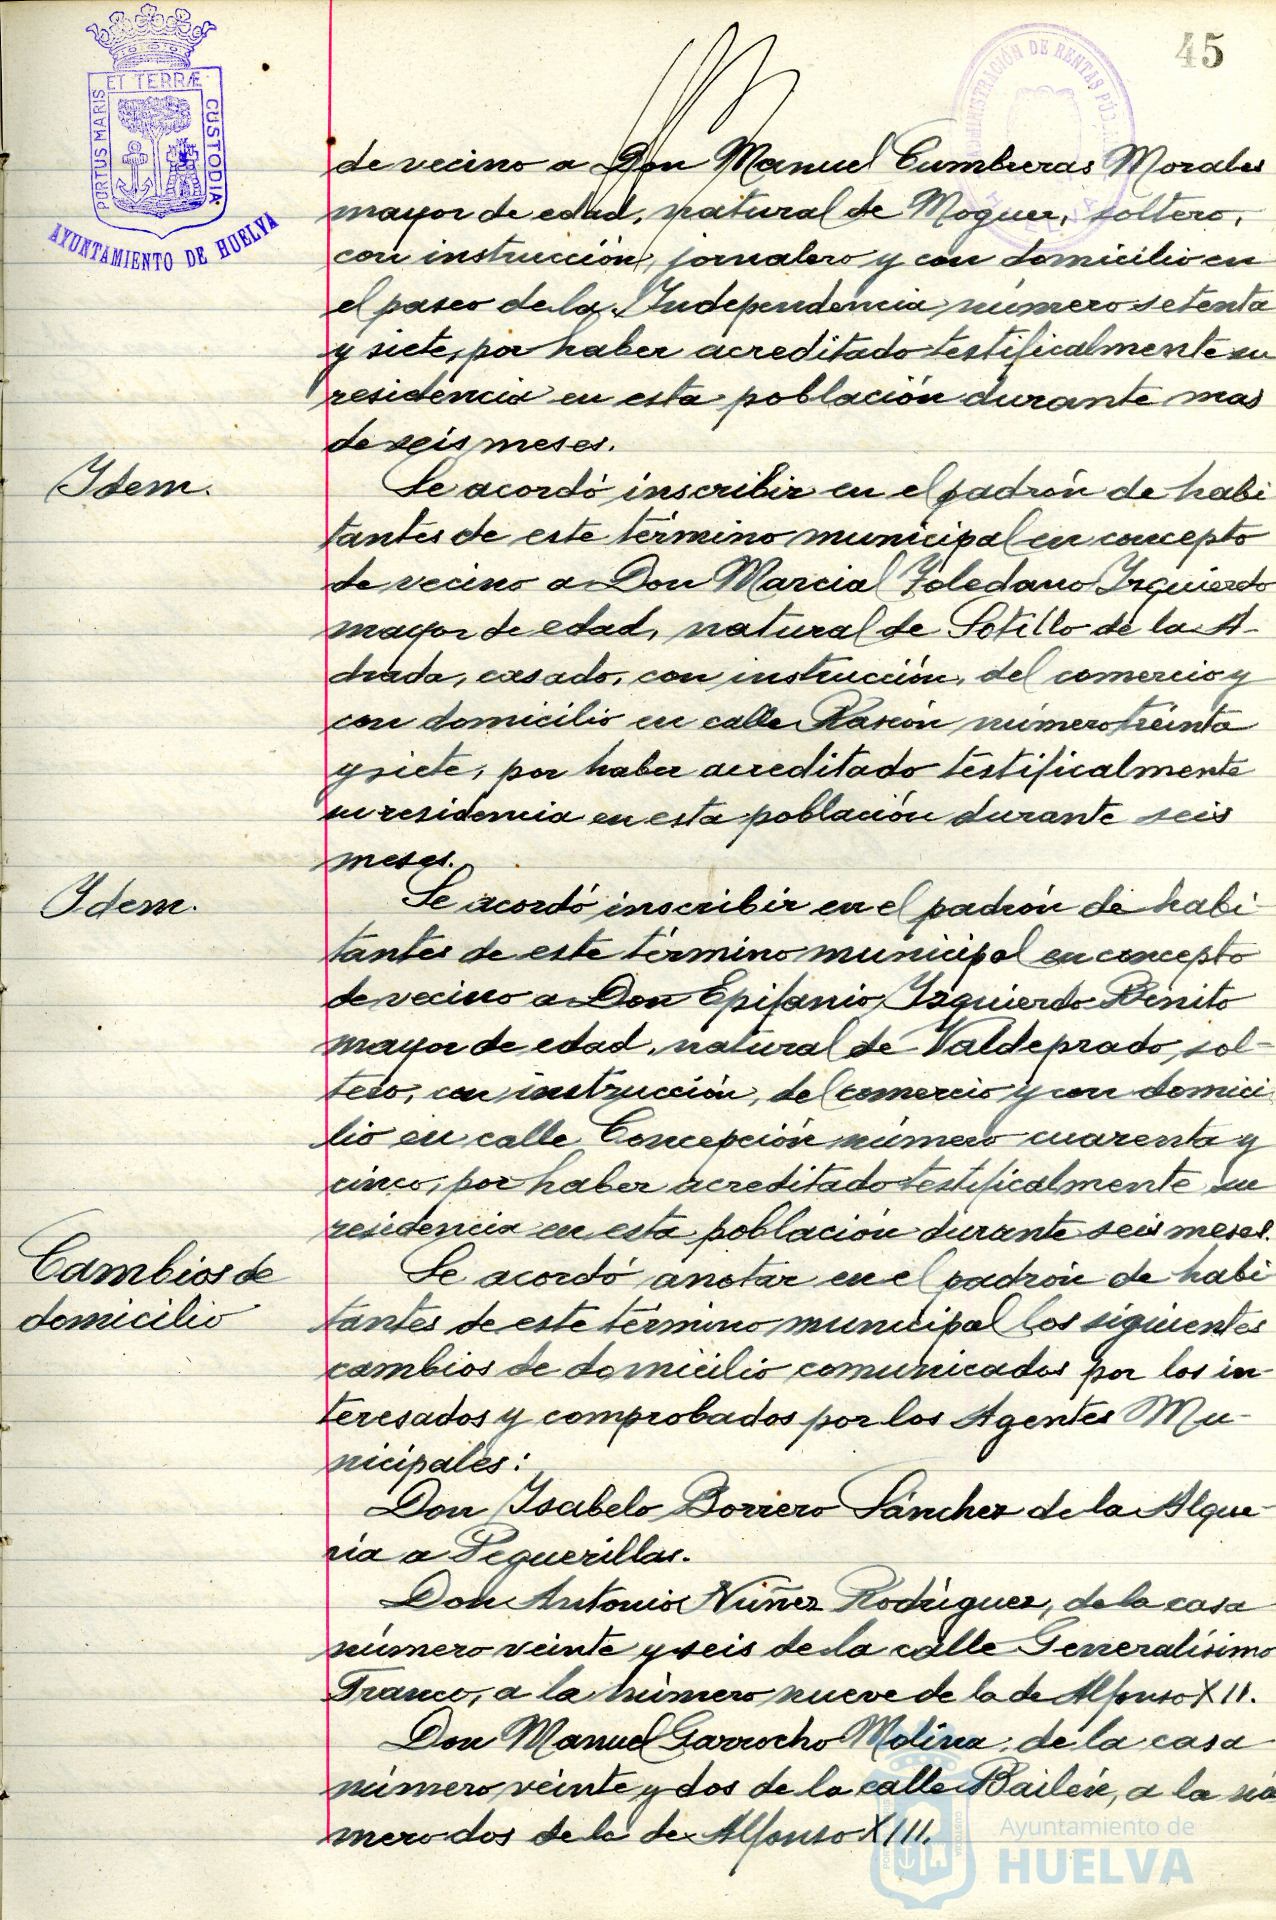 45
PORTUS MARIS ET TERRÆ CUSTODIA
AYUNTAMIENTO DE HUELVA
ADMINISTRACIÓN DE RENTAS PÚBLICAS
HUELVA
de vecino a Don Manuel Cumbreras Morales
mayor de edad, natural de Moguer, soltero,
con instrucción, jornalero y con domicilio en
el paseo de la Independencia número setenta
y siete, por haber acreditado testificalmente su
residencia en esta población durante mas
de seis meses.
Idem.
Se acordó inscribir en el padrón de habi
tantes de este término municipal en concepto
de vecino a Don Marcial Toledano Izquierdo
mayor de edad, natural de Sotillo de la A-
drada, casado, con instrucción, del comercio y
con domicilio en calle Rascón número treinta
y siete, por haber acreditado testificalmente
su residencia en esta población durante seis
meses.
Idem.
Se acordó inscribir en el padrón de habi-
tantes de este término municipal en concepto
de vecino a Don Epifanio Izquierdo Benito
mayor de edad, natural de Valdeprado, sol-
tero, con instrucción, del comercio y con domici
lio en calle Concepción número cuarenta y
cinco, por haber acreditado testificalmente su
residencia en esta población durante seis meses.
Cambios de
domicilio
Se acordó anotar en el padrón de habi
tantes de este término municipal los siguientes
cambios de domicilio comunicados por los in-
teresados y comprobados por los Agentes Mu-
nicipales:
Don Isabelo Borrero Sánchez de la Alque-
ria a Peguerillas.
Don Antonio Núñez Rodríguez, de la casa
número veinte y seis de la calle Generalísimo
Franco, a la número nueve de la de Alfonso XII.
Don Manuel Garrocho Molina, de la casa
número veinte y dos de la calle Bailén, a la nú
mero dos de la de Alfonso XIII.
Ayuntamiento de
HUELVA